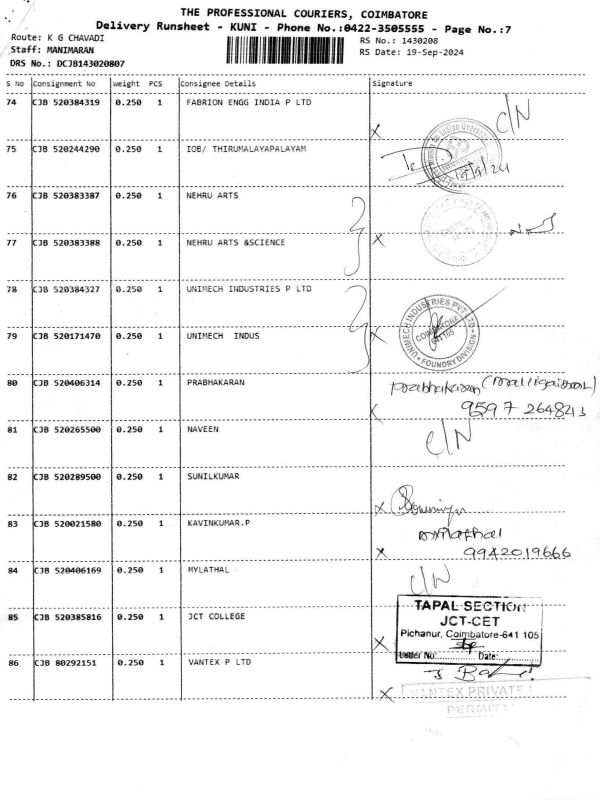 THE PROFESSIONAL COURIERS, COIMBATORE
Delivery Runsheet - KUNI - Phone No.:0422-3505555 - Page No.:7
Route: K G CHAVADI
RS No.: 1430208
Staff: MANIMARAN
RS Date: 19-Sep-2024
DRS No.: DCJB143020807
S No Consignment No Weight PCS Consignee Details Signature
74 CJB 520384319 0.250 1 FABRION ENGG INDIA P LTD C/N
X
75 CJB 520244290 0.250 1 IOB/ THIRUMALAYAPALAYAM
Indian Overseas
19/9/24
76 CJB 520383387 0.250 1 NEHRU ARTS
77 CJB 520383388 0.250 1 NEHRU ARTS &SCIENCE X
78 CJB 520384327 0.250 1 UNIMECH INDUSTRIES P LTD
UNIMECH INDUSTRIES PVT LTD
COIMBATORE
641105
FOUNDRY DIVISION
79 CJB 520171470 0.250 1 UNIMECH INDUS X
80 CJB 520406314 0.250 1 PRABHAKARAN Prabhakaran
X 9597264821
81 CJB 520265500 0.250 1 NAVEEN C/N
82 CJB 520289500 0.250 1 SUNILKUMAR
X
83 CJB 520021580 0.250 1 KAVINKUMAR.P
X 9942019666
84 CJB 520406169 0.250 1 MYLATHAL C/N
85 CJB 520385816 0.250 1 JCT COLLEGE
TAPAL SECTION
JCT-CET
Pichanur, Coimbatore-641 105
Letter No:............ Date:............
X
86 CJB 80292151 0.250 1 VANTEX P LTD
X VANTEX PRIVATE
PERMIT
No.